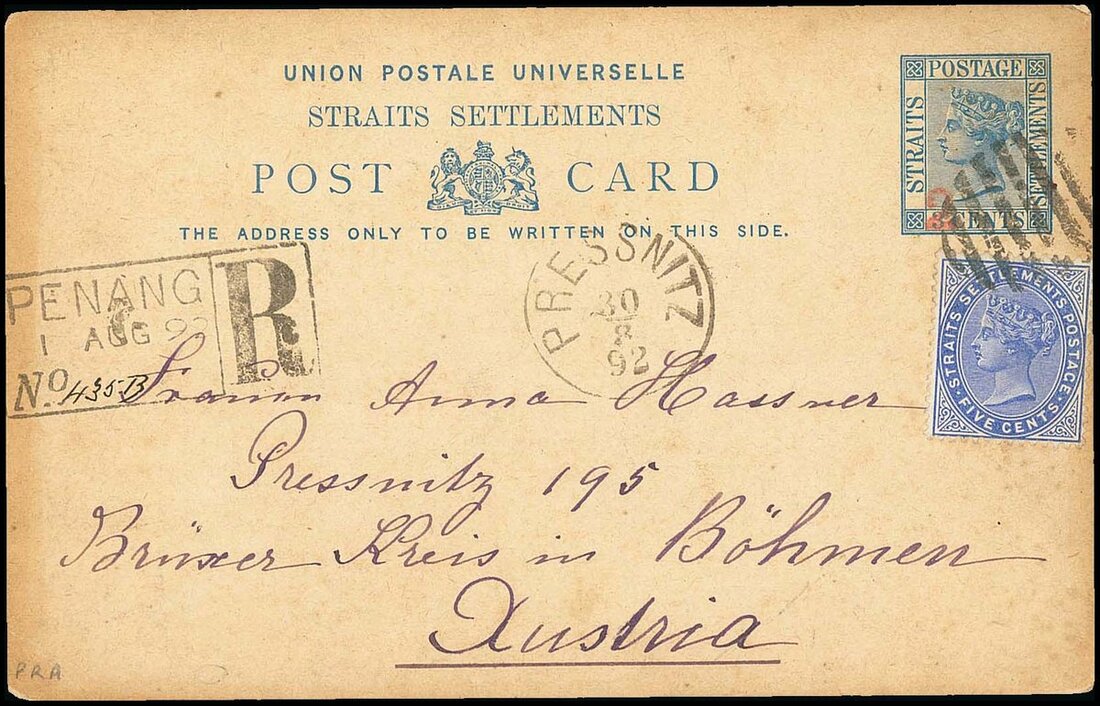 UNION POSTALE UNIVERSELLE
STRAITS SETTLEMENTS
POST CARD
THE ADDRESS ONLY TO BE WRITTEN ON THIS SIDE.
POSTAGE
STRAITS
SETTLEMENTS
CENTS
STRAITS SETTLEMENTS POSTAGE
FIVE CENTS
PENANG
1 AUG
No 435 B
R
PRESSNITZ
30
8
92
Anna Hassner
Pressnitz 195
Brüxer Kreis in Böhmen
Austria
PRA